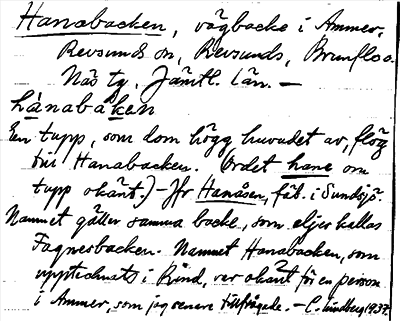 Hanabacken, vägbacke i Ammer,
Revsunds sn, Revsunds, Brunflo o.
Näs tg. Jämtl. län. —
hànabáken
En tupp, som dom högg huvudet av, flög
till Hanabacken. (Ordet hane om
tupp okänt.) – Jfr Hanåsen, fäb. i Sundsjö.
Namnet gäller samma backe, som eljes kallas
Fagnesbacken. Namnet Hanabacken, som
upptecknats i Rind, var okänt för en person
i Ammer, som jag senare tillfrågade. – C. Lindberg 1937.